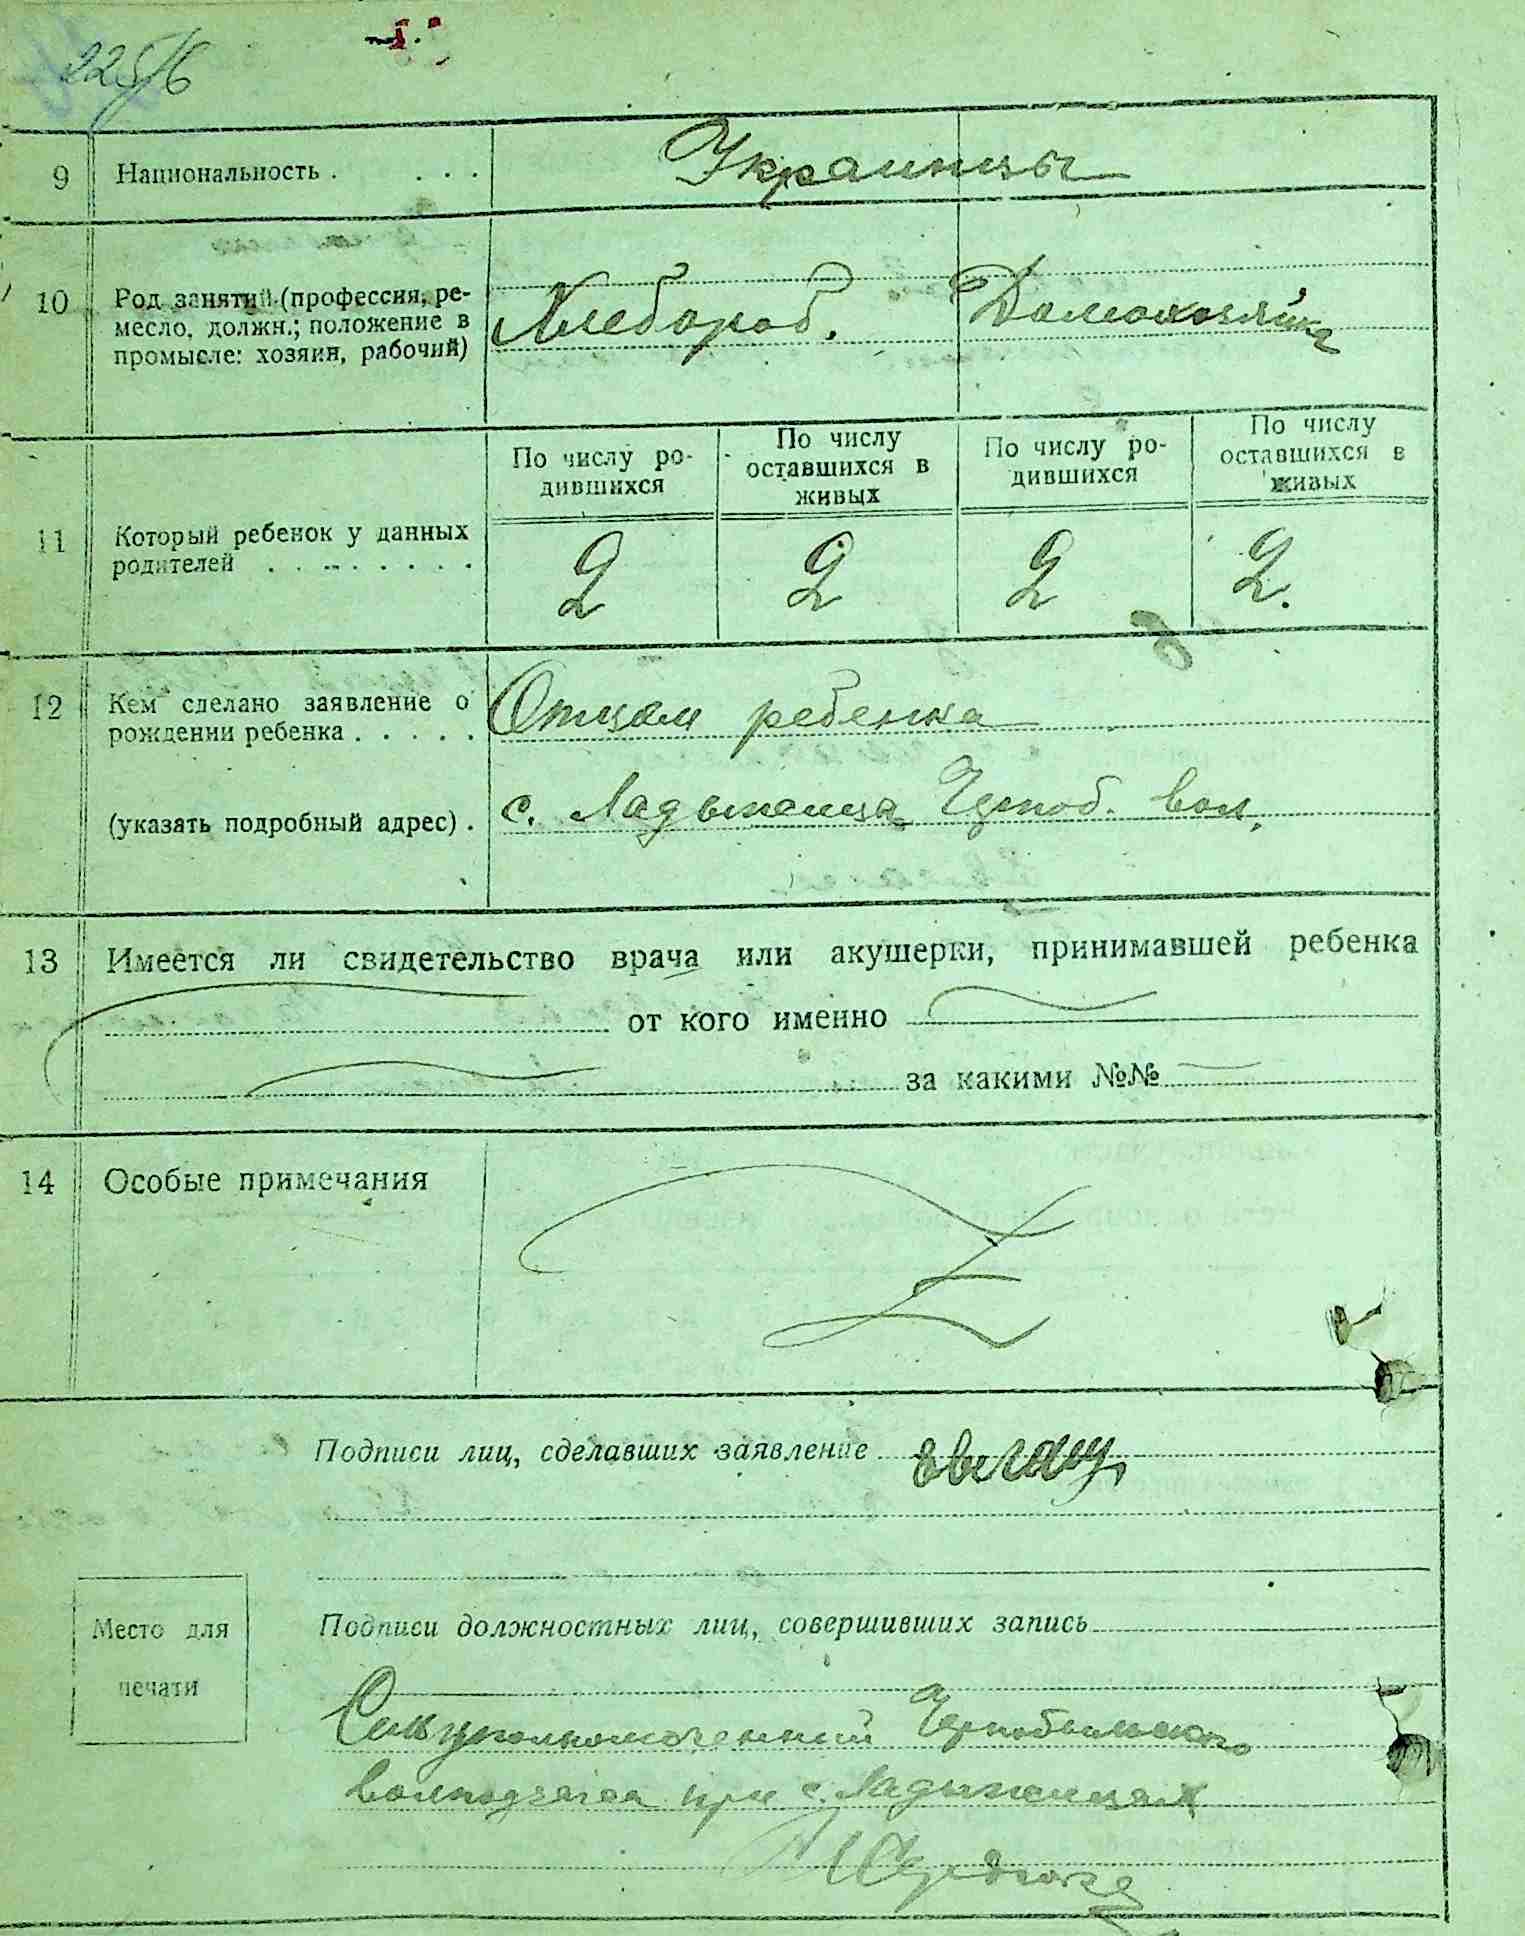 225/6
9 Национальность . . . . Украинцы
10 Род занятий (профессия, ре-
месло, должн.; положение в
промысле: хозяин, рабочий)
Хлебороб. Домохозяйка
По числу ро-
дившихся
По числу
оставшихся в
живых
По числу ро-
дившихся
По числу
оставшихся в
живых
11 Который ребенок у данных
родителей . . . . . . . .
2 2 2 2.
12 Кем сделано заявление о
рождении ребенка . . . . .
Отцом ребенка
(указать подробный адрес) . с. Ладыжица Черноб. вол.
13 Имеется ли свидетельство врача или акушерки, принимавшей ребенка
от кого именно
за какими №№
14 Особые примечания
Подписи лиц, сделавших заявление
Место для
печати
Подписи должностных лиц, совершивших запись
Чернобыльского
волподзагса при с. Ладыжицах